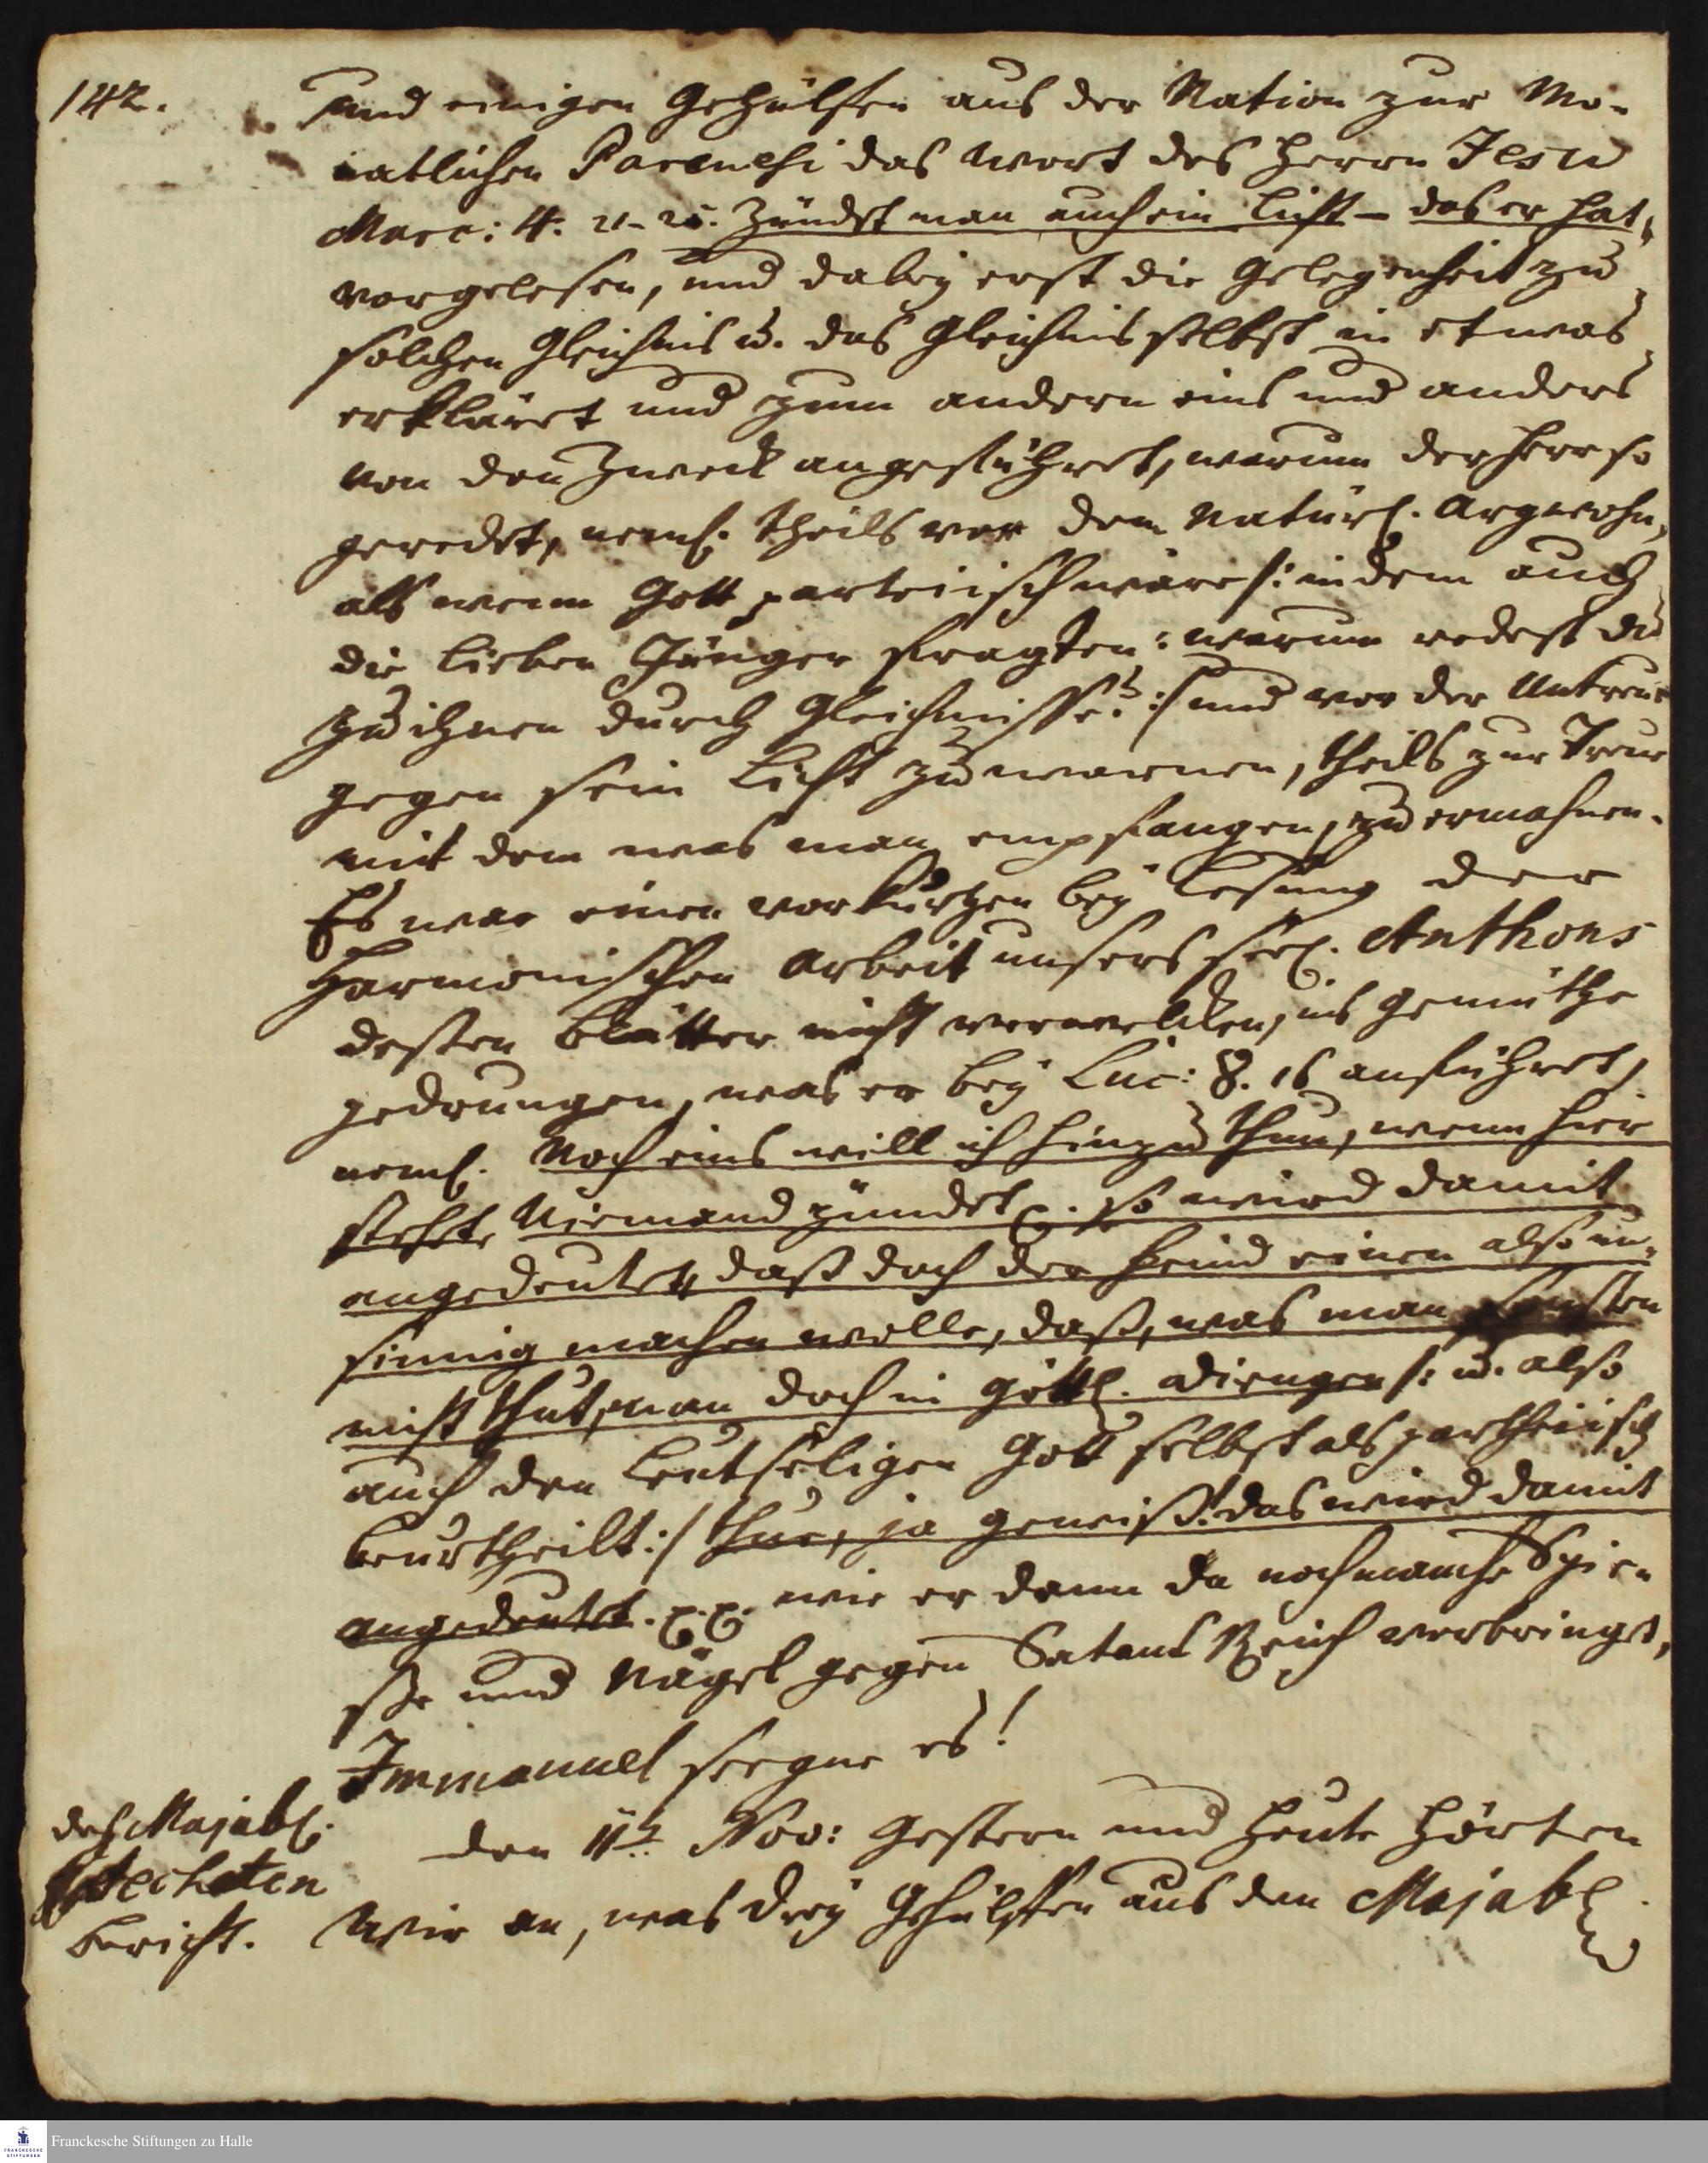 142.
und einigen Gehülfen aus der Nation zur Mo-
natlichen Paraenesi das Wort des Herrn Jesu
Marc: 4. 21-25. Zündet man auch ein Licht – das er hat,
vorgelesen, und dabey erst die Gelegenheit zu
solchen Gleichnis u. das Gleichnis selbst in etwas
erkläret und zum andern eins und anders
von den Zweck angeführet, warum der Herr so
geredet, neml. theils vor dem Natürl. Argwohn,
als wenn Gott parteiisch wäre /: indem auch
die lieben Jünger fragten: warum redest du
zu ihnen durch Gleichnisse? :/ und vor der Untreue
gegen sein Licht zu warnen, theils zur Treue
mit dem was man empfangen, zu ermahnen.
Es war einen vor kurtzen bey Lesung der
Harmonischen Arbeit unsers seel. Anthons
deßen Blätter nicht verwelcken, ins Gemüthe
gedrungen, was er bey Luc: 8. 16 anführet,
neml. Noch eins will ich hinzu thun, wenn hier
stehet, Niemand zündet p. so wird damit
angedeutet, daß doch der Feind einen also un-
sinnig machen wolle, daß, was man sonsten
nicht thut, man doch in göttl. Dingen /: u. also
auch den Leutseligen Gott selbst als partheiisch
beurtheilt :/ thue, ja gewiß! das wird damit
angedeutet. p.p. wie er dann da noch manche Spie-
ße und Nägel gegen Satans Reich vorbringet,
Immanuel seegne es!
des Majabl.
Catecheten
Bericht.
den 11t Nov: Gestern und heute hörten
Wir an, was drey Gehülffen aus den Majabl.
Franckesche Stiftungen zu Halle